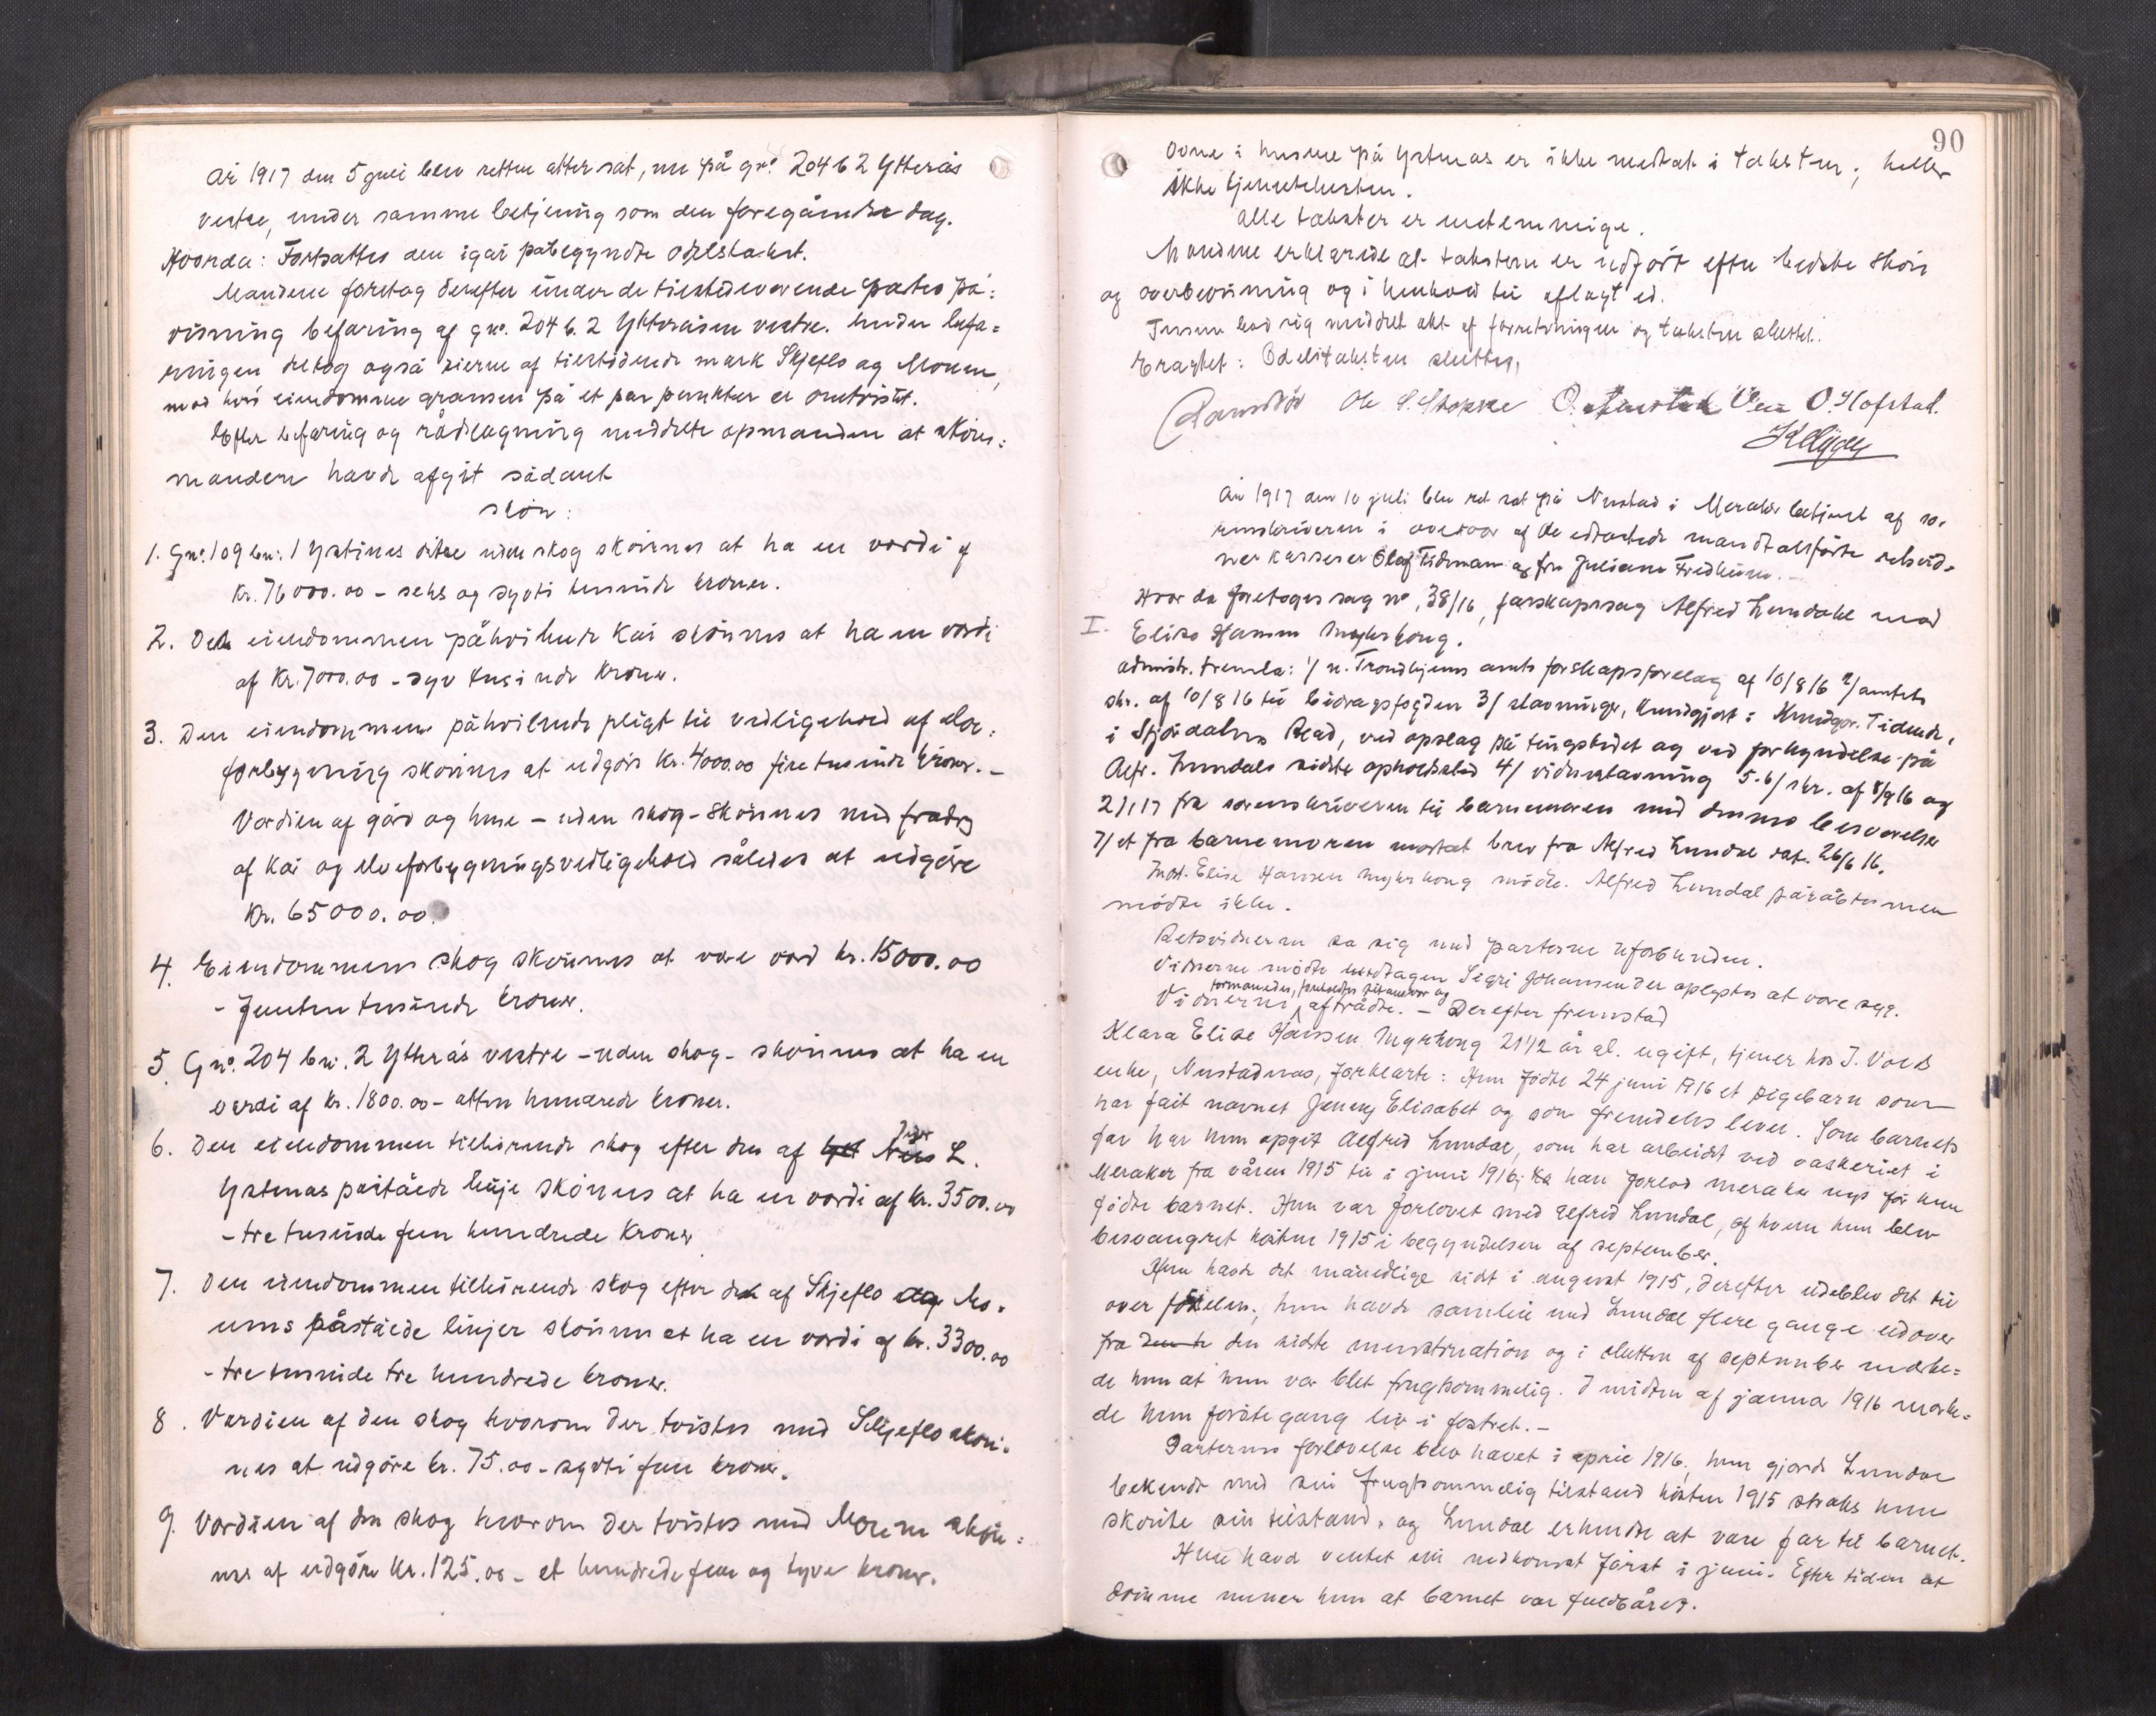 År 1917 den 5 juli blev retten atter sat, nu på gno. 204 b 2 Ytterås
vestre, under samme betjening som den foregående dag.
Hvorda: Fortsattes den igår påbegyndte odelstakst.
Mændene foretog derefter under de tilstedeværende parters på:
visning befaring af gno. 204 b. 2 Ytteråsen vestre. Under befa=
ringen deltog også eierne af tilstødende mark Skjeflo og Mouen,
mod hvis eiendomme grænsen på et par punkter er omtvistet.
Efter befaring og rådlagning meddelte opmanden at skøns:
mændene havde afgit sådant
skøn:
1. Gno. 109 bn. 1 Ystines øtre uden skog skønnes at ha en værdi af
kr. 76000.00 - seks og sytti tusinde kroner.
2. Det eiendommen påhvilende kår skønnes at ha en værdi
af kr. 7000.00 - syv tusinde kroner.
3. Den eiendommen påhvilende pligt til vedligehold af elve:
forbygning skønnes at udgøre kr. 4000.00 fire tusinde kroner. -
Værdien af gård og huse - uden skog - skønnes med fradrag
af kår og elveforbygningsvedligehold således at udgøre
kr. 65000.00.
4. Eiendommens skog skønnes at være værd kr. 15000.00
- femten tusinde kroner.
5. Gno. 204 bn. 2 Ytterås vestre - uden skog - skønnes at ha en
værdi af kr. 1800.00 - atten hundrede kroner.
6. Den eiendommen tilhørende skog efter den af L.
Ystenas påståede linje skønnes at ha en værdi af kr. 3500.00
- tre tusinde fem hundrede kroner
7. Den eiendommen tilhørende skog efter det af Skjeflo og Mo-
uens påståede linjer skønnes at ha en værdi af kr. 3300.00
- tre tusinde tre hundrede kroner.
8. Værdien af den skog hvorom der tvistes med Skjeflo skøn-
nes at udgøre kr. 75.00 - sytti fem kroner.
9. Værdien af den skog hvorom der tvistes med Mouen skøn:
nes at udgøre kr. 125.00 - et hundrede fem og tyve kroner.
90
Ovne i husene på Ystenas er ikke medtat i taksten; heller
ikke tjenestehesten.
Alle takster er enstemmige.
Mændene erklærede at taksten er udført efter bedste skøn
og overbevisning og i henhold til aflagt ed.
Jensen bad sig meddelt akt af forretningen og taksten sluttet.
Eragtet: Odelstaksten sluttes.
Ole S. Stokke O. Hofstad.
År 1917 den 10 juli blev ret sat på Nustad i Meraker betjent af so-
renskriveren i overvær af de edtastede mandtalsførte retsvid-
ner kasserer Olaf Tideman og fru Juliane Fredheim. -
Hvor da foretoges sag no. 38/16, farskapssag Alfred Lundahl mod
I. Elise Hansen Myrhaug.
Adminstr. fremla: 1/ n. Trondhjems amts farskapsforelæg af 10/8 16 2/ amtets
skr. af 10/8 16 til bidragsfogden 3/ stævninge, kundgjort i Kundgør. Tidende,
i Stjørdalens Blad, ved opslag på tingstedet og ved forkyndelse på
Alfr. Lundals sidste opholdssted 4/ vidnestævning 5-6/ skr. af 8/9 16 og
2/1 17 fra sorenskriveren til barnemoren med dennes besvarelser
7/ et fra barnemoren mottat brev fra Alfred Lundal dat. 26/6 16.
Indst. Elise Hansen Myrhaug mødte. Alfred Lundal påråbtes men
mødte ikke.
Retsvidnerne sa sig med parterne uforbundne.
Vidnerne mødte undtagen Sigri Johansen der oplystes at være syg.
formanedes, foreholdtes edsansvar og
Vidnerne aftrådte. - Derefter fremstod
Klara Elise Hansen Myrhaug 21 1/2 år gl. ugift, tjener hos J. Volds
enke, Nustadnas, forklarte: Hun fødte 24 juni 1916 et pigebarn som
har fåit navnet Jenny Elisabet og som fremdeles lever. Som barnets
far har hun opgit Alfred Lundal, som har arbeidet ved vaskeriet i
Meraker fra våren 1915 til i juni 1916, da han forlod Meraker nys før hun
fødte barnet. Hun var forlovet med Alfred Lundal, af hvem hun blev
besvangret høsten 1915 i begyndelsen af september.
Hun havde det månedlige sidst i august 1915, derefter udeblev det til
over fødselen; hun havde samleie med Lundal flere gange udover
fra den sidste menstruation og i slutten af september mærke=
de hun at hun var blet frugtsommelig. I midten af januar 1916 mærke=
de hun første gang liv i fostret. -
Parternes forlovelse blev hævet i april 1916, hun gjorde Lundal
bekendt med sin frugtsommelig tilstand høsten 1915 straks hun
skønte sin tilstand, og Lundal erkendte at være far til barnet.
Hun havde ventet sin nedkomst først i juni. Efter tiden at
dømme mener hun at barnet var fuldbåret.